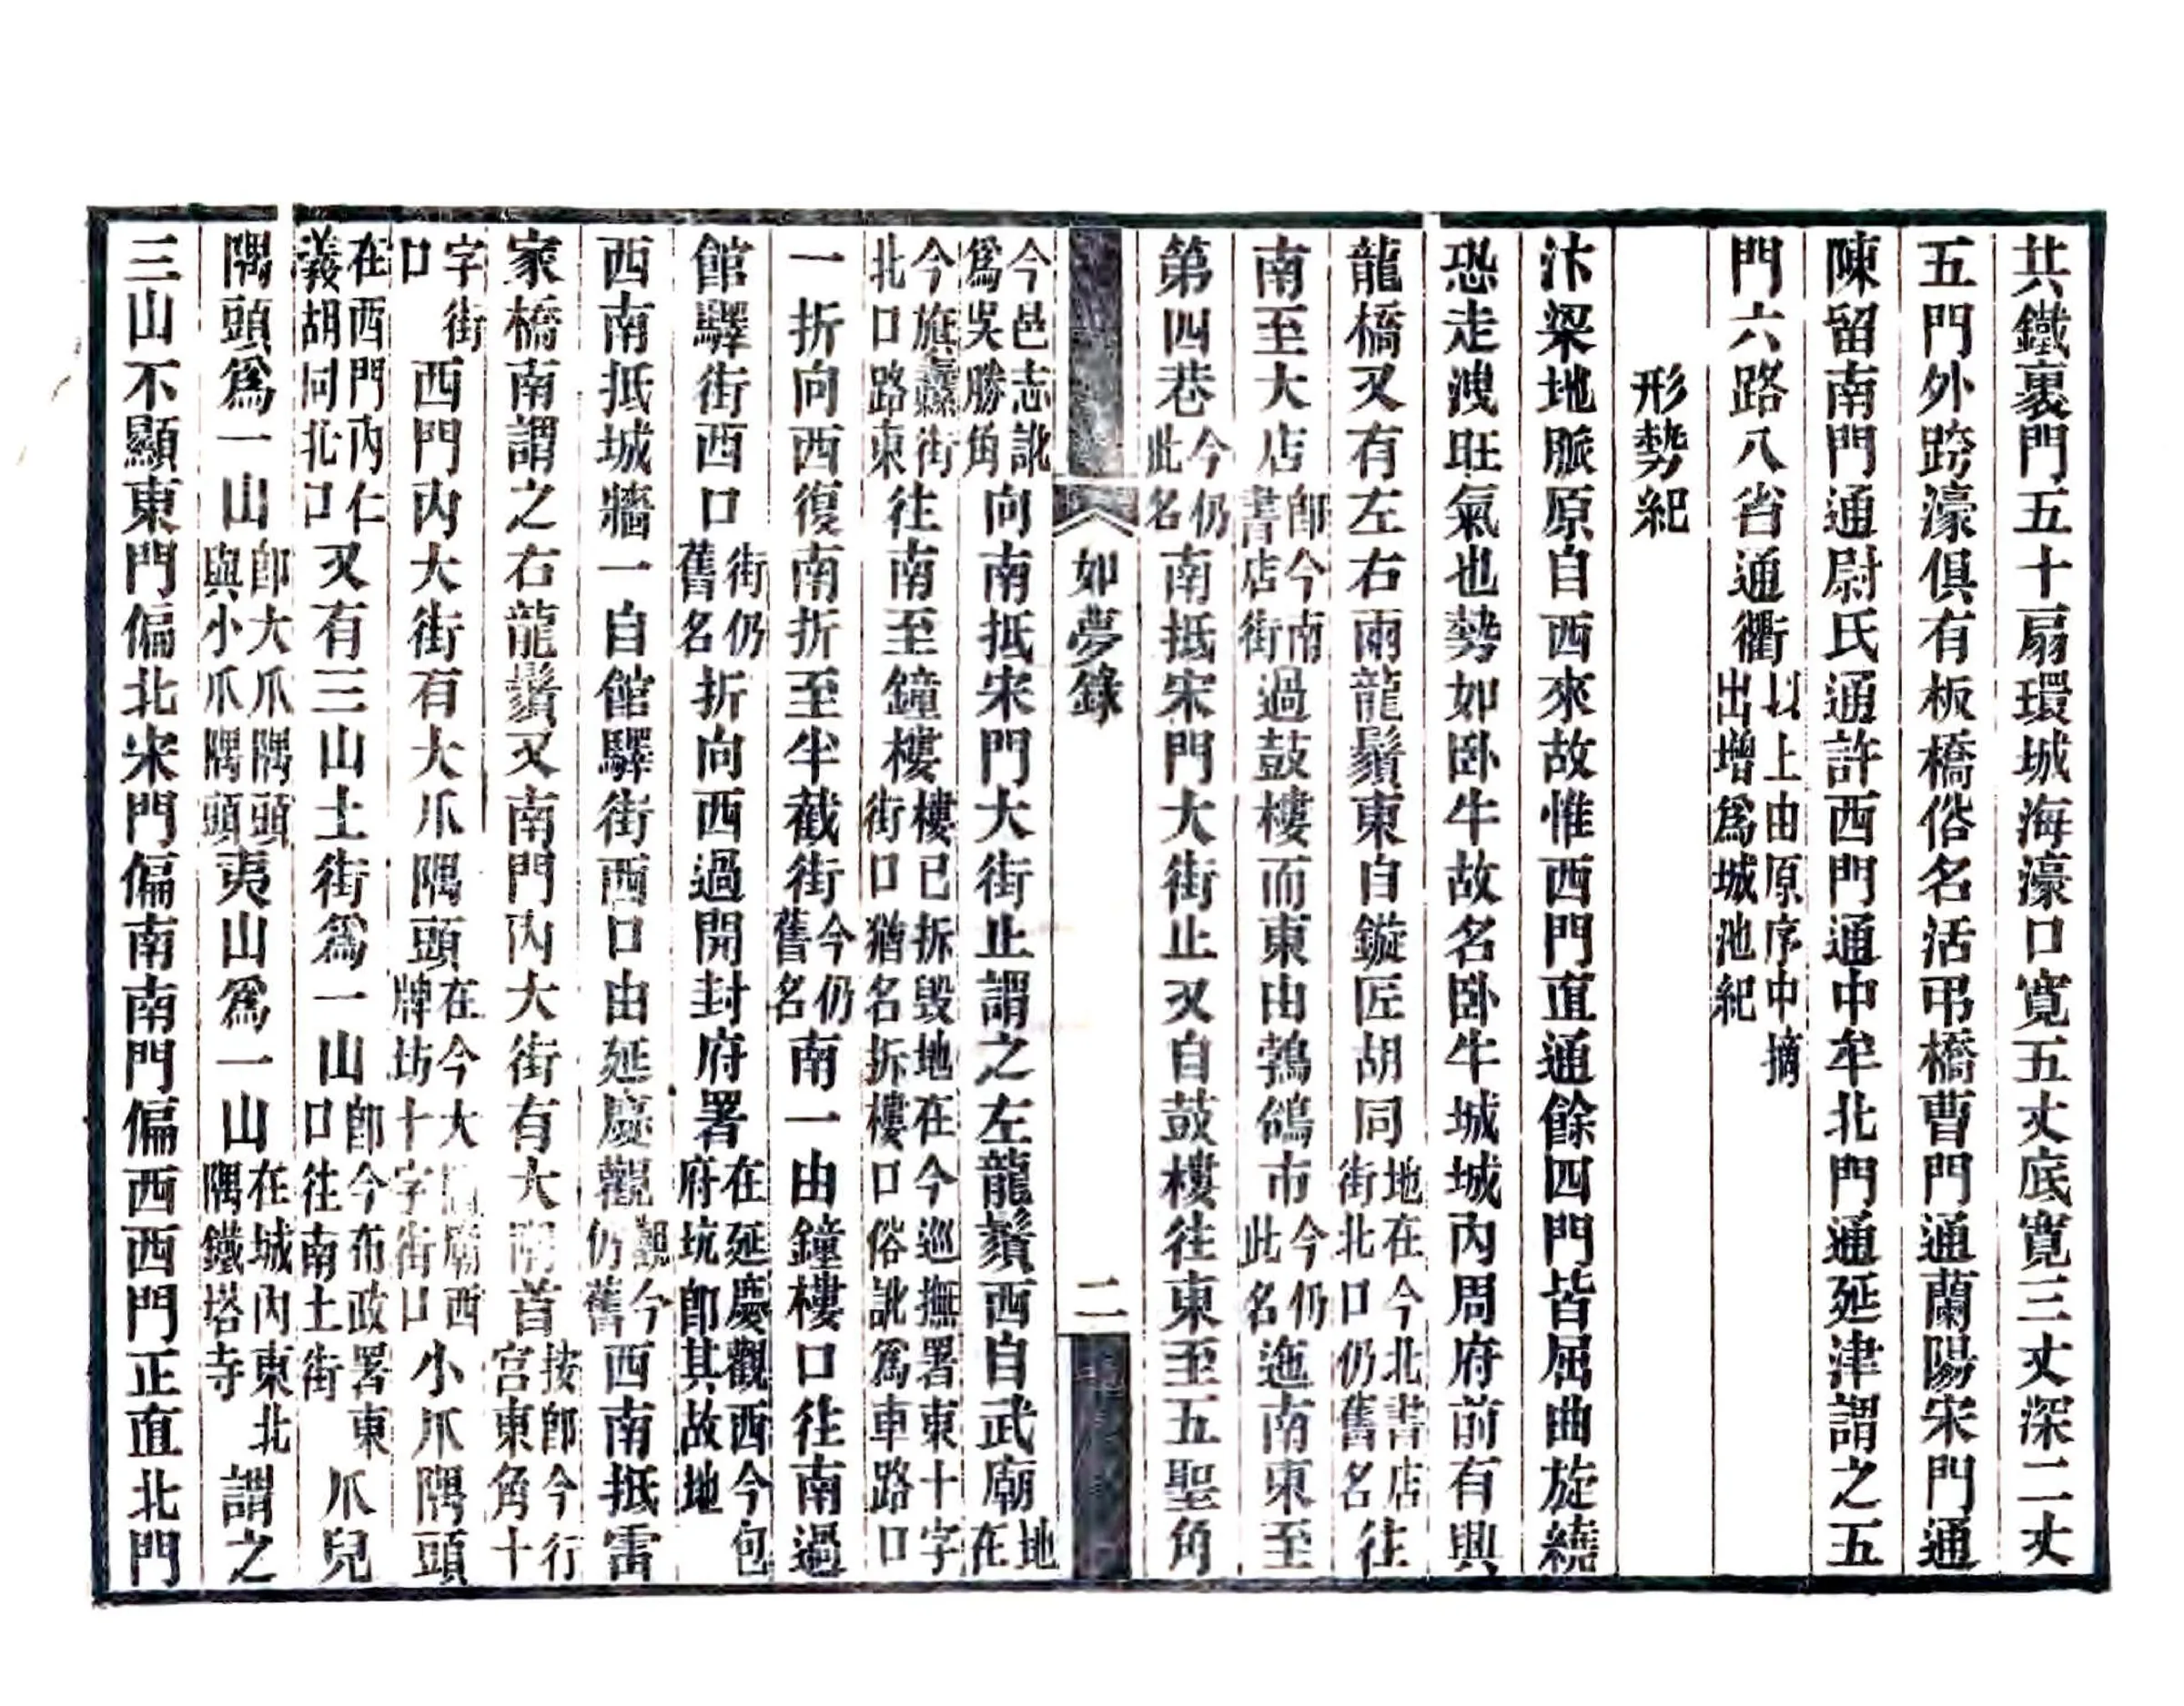 共鐵裏門五十扇環城海濠口寬五丈底寬三丈深二丈
五門外跨濠俱有板橋俗名活弔橋曹門通蘭陽宋門通
陳留南門通尉氏通許西門通中牟北門通延津謂之五
門六路八省通衢以上由原序中摘出增爲城池紀
形勢紀
汴梁地脈原自西來故惟西門直通餘四門皆屈曲旋繞
恐走洩旺氣也勢如卧牛故名卧牛城城內周府前有興
龍橋又有左右兩龍鬚東自鏇匠胡同地在今北書店街北口仍舊名往
南至大店卽今南書店街過鼓樓而東由鵓鴿市今仍此名迤南東至
第四巷今仍此名南抵宋門大街止又自鼓樓往東至五聖角
如夢錄 二
今邑志訛爲吳勝角向南抵宋門大街止謂之左龍鬚西自武廟地在
今旗纛街北口路東往南至鐘樓樓已拆毀地在今巡撫署東十字街口猶名拆樓口俗訛爲車路口
一折向西復南折至半截街今仍舊名南一由鐘樓口往南過
館驛街西口街仍舊名折向西過開封府署在延慶觀西今包府坑卽其故地
西南抵城牆一自館驛街西口由延慶觀觀今仍舊西南抵雷
家橋南謂之右龍鬚又南門內大街有大隅首按卽今行宮東角十
字街口西門內大街有大爪隅頭在今大廟西牌坊十字街口小爪隅頭
在西門內仁義胡同北口又有三山土街爲一山卽今布政署東口往南土街爪兒
隅頭爲一山卽大爪隅頭與小爪隅頭夷山爲一山在城內東北隅鐵塔寺謂之
三山不顯東門偏北宋門偏南南門偏西西門正直北門